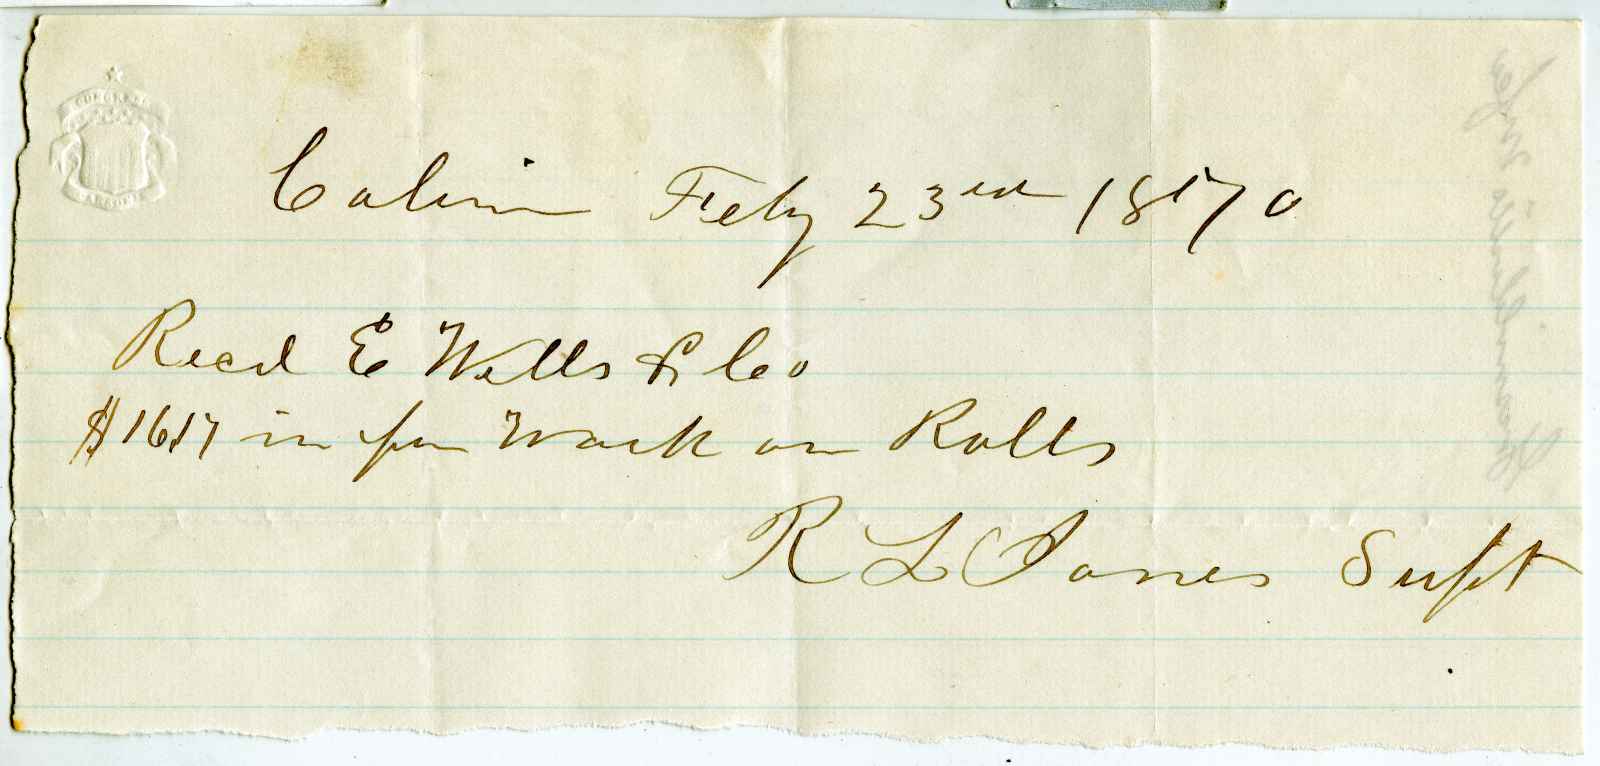 CONGRESS
CARSONS
Calvin Feby 23rd 1870
Recd E Wells & Co
$16.17 in for Work on Rolls
R L Jones Supt